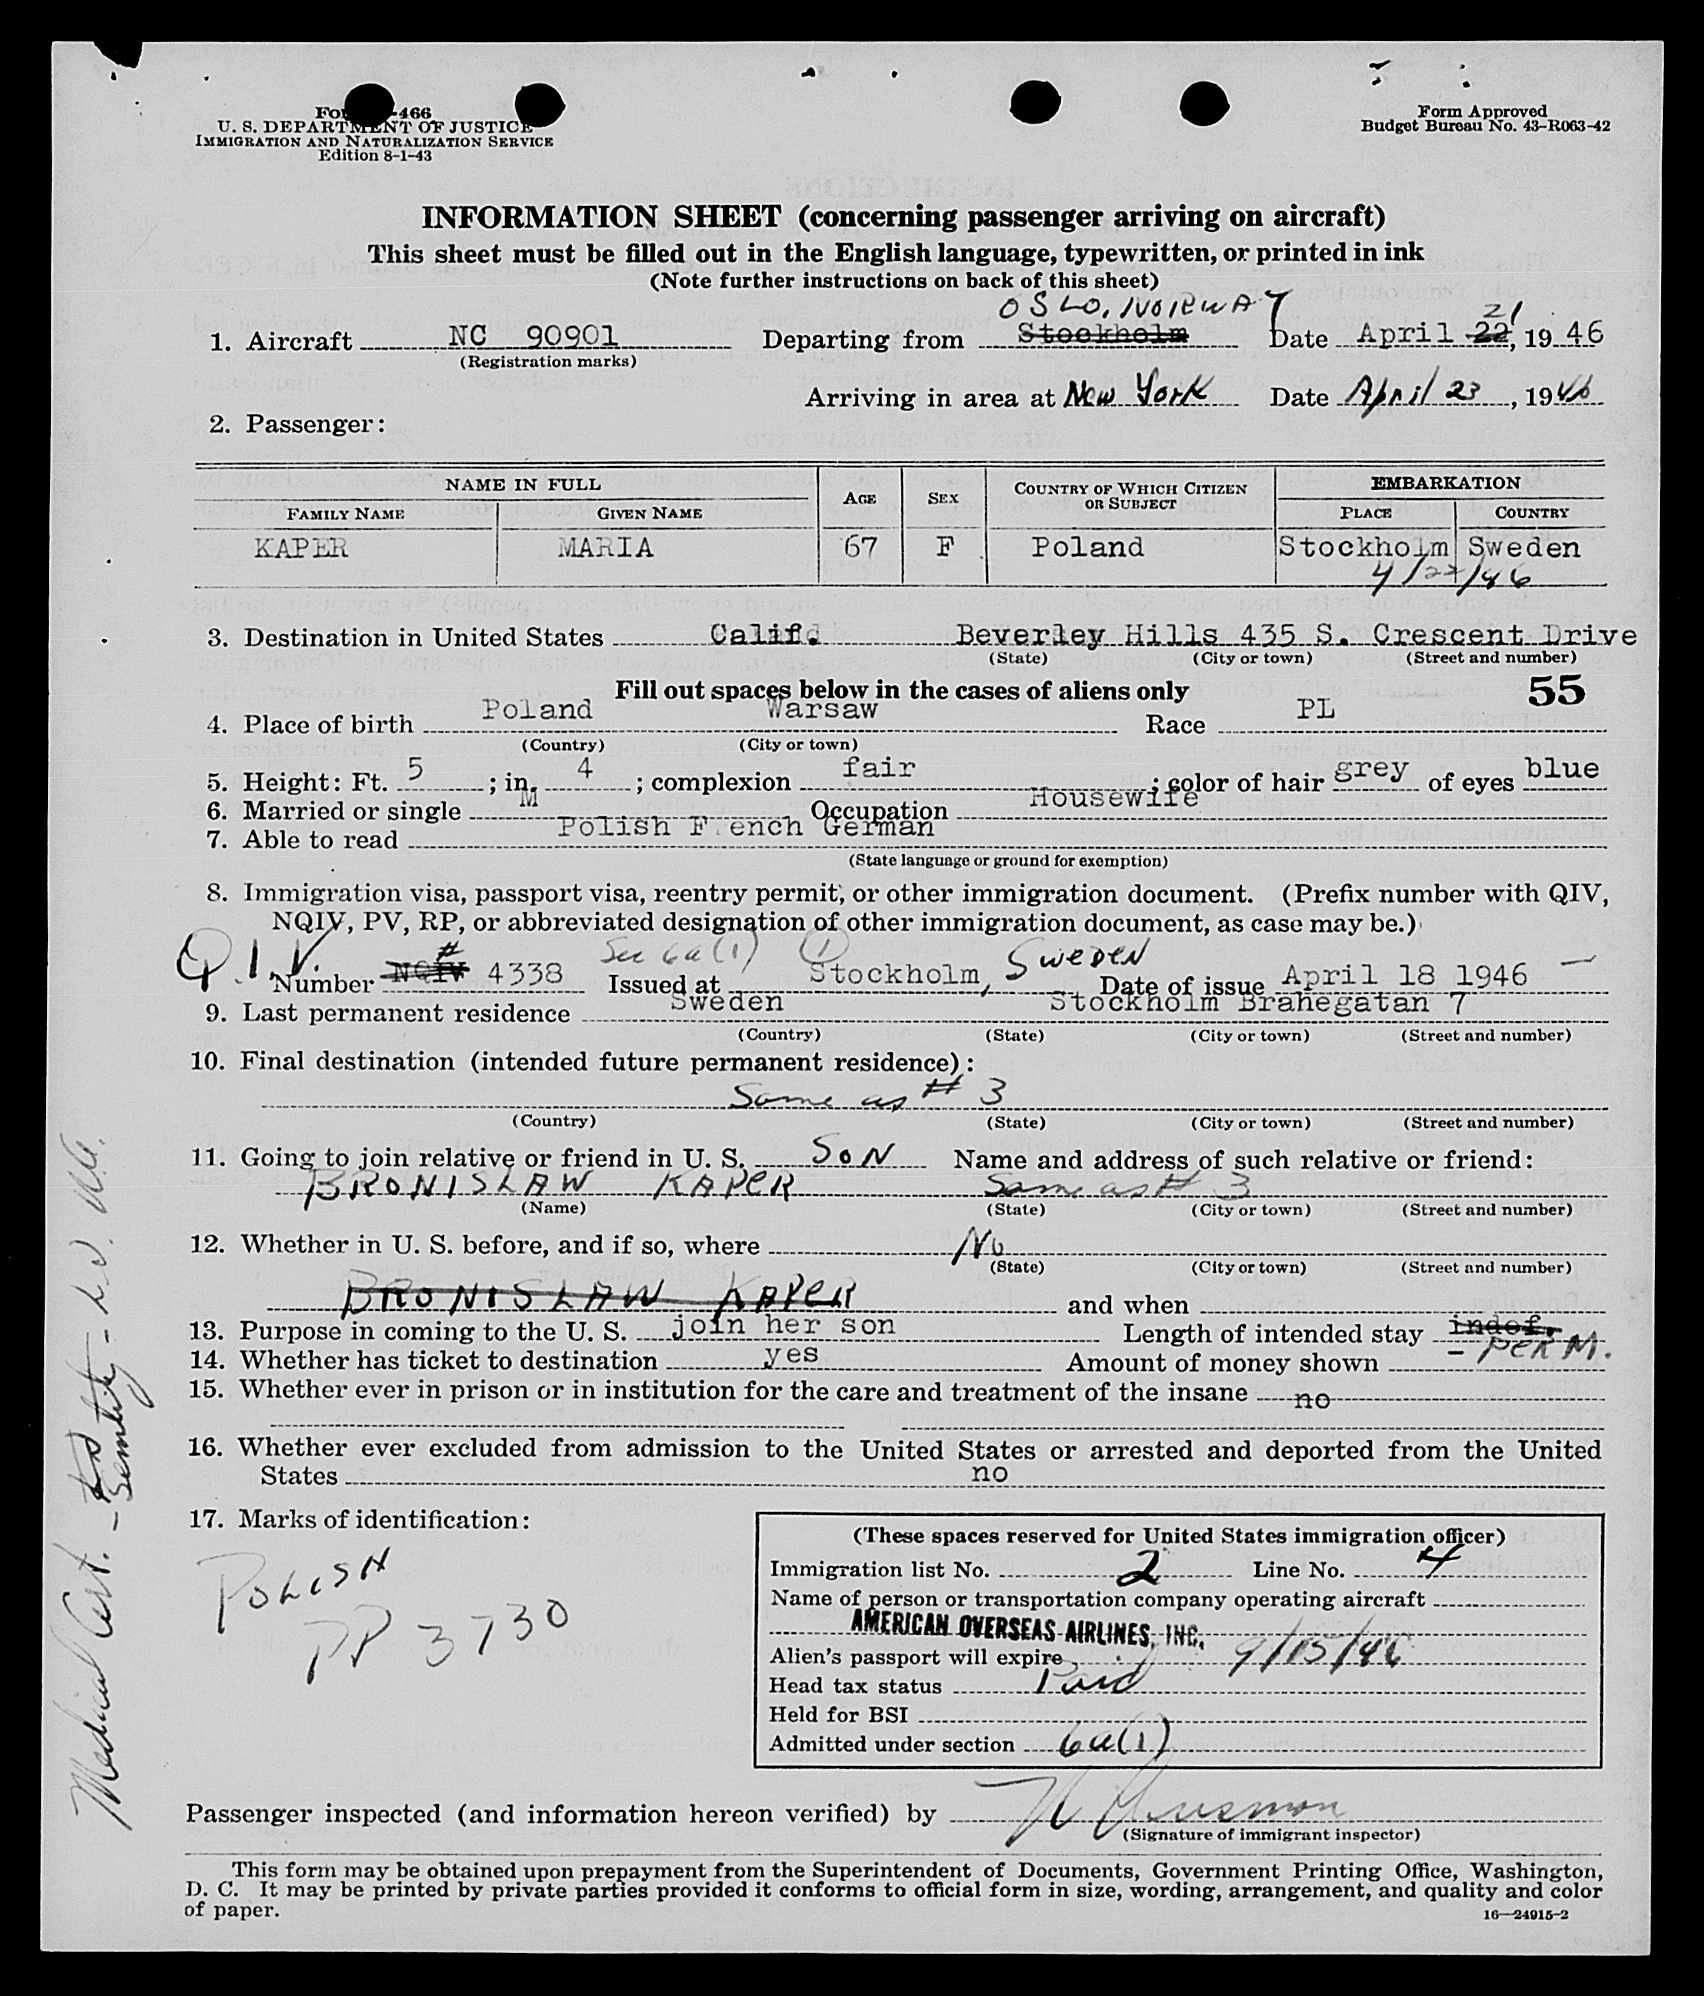 Form -466
U. S. DEPARTMENT OF JUSTICE
IMMIGRATION AND NATURALIZATION SERVICE
Edition 8-1-43
Form Approved
Budget Bureau No. 43-R063-42
INFORMATION SHEET (concerning passenger arriving on aircraft)
This sheet must be filled out in the English language, typewritten, or printed in ink
(Note further instructions on back of this sheet)
OSLO, NORWAY 21
1. Aircraft NC 90901 Departing from Stockholm Date April 22, 1946
(Registration marks)
Arriving in area at New York Date April 23, 1946
2. Passenger:
NAME IN FULL AGE SEX COUNTRY OF WHICH CITIZEN OR SUBJECT EMBARKATION
FAMILY NAME GIVEN NAME PLACE COUNTRY
KAPER MARIA 67 F Poland Stockholm Sweden
4/22/46
3. Destination in United States Calif. Beverley Hills 435 S. Crescent Drive
(State) (City or town) (Street and number)
Fill out spaces below in the cases of aliens only 55
4. Place of birth Poland Warsaw Race PL
(Country) (City or town)
5. Height: Ft. 5; in. 4; complexion fair; color of hair grey of eyes blue
6. Married or single M Occupation Housewife
7. Able to read Polish French German
(State language or ground for exemption)
8. Immigration visa, passport visa, reentry permit, or other immigration document. (Prefix number with QIV,
NQIV, PV, RP, or abbreviated designation of other immigration document, as case may be.)
Q.I.V. # Sec 6a(1) (1) Sweden
Number NQIV 4338 Issued at Stockholm, Date of issue April 18 1946
9. Last permanent residence Sweden Stockholm Brahegatan 7
(Country) (State) (City or town) (Street and number)
10. Final destination (intended future permanent residence):
Same as # 3
(Country) (State) (City or town) (Street and number)
11. Going to join relative or friend in U. S. SON Name and address of such relative or friend:
BRONISLAW KAPER Same as # 3
(Name) (State) (City or town) (Street and number)
12. Whether in U. S. before, and if so, where No
(State) (City or town) (Street and number)
BRONISLAW KAPER and when
13. Purpose in coming to the U. S. join her son Length of intended stay indef. - PERM.
14. Whether has ticket to destination yes Amount of money shown
15. Whether ever in prison or in institution for the care and treatment of the insane no
16. Whether ever excluded from admission to the United States or arrested and deported from the United
States no
17. Marks of identification:
POLISH
PP 3730
Medical Cert. - Senility
(These spaces reserved for United States immigration officer)
Immigration list No. 2 Line No. 4
Name of person or transportation company operating aircraft
AMERICAN OVERSEAS AIRLINES, INC.
Alien's passport will expire 9/15/46
Head tax status Paid
Held for BSI
Admitted under section 6a(1)
Passenger inspected (and information hereon verified) by
(Signature of immigrant inspector)
This form may be obtained upon prepayment from the Superintendent of Documents, Government Printing Office, Washington,
D. C. It may be printed by private parties provided it conforms to official form in size, wording, arrangement, and quality and color
of paper.
16—24915-2